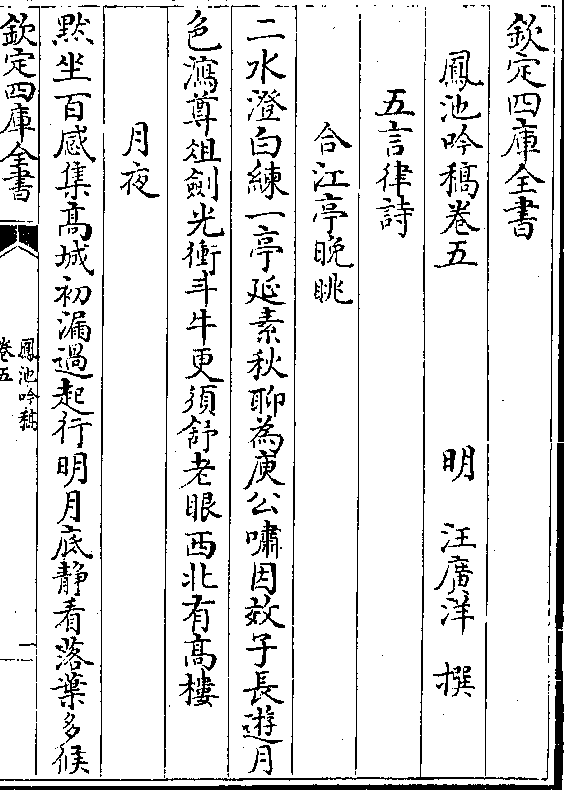 欽定四庫全書
鳳池吟稿卷五
明 汪廣洋 撰
五言律詩
合江亭晚眺
二水澄白練一亭延素秋聊為庾公嘯因效子長遊月
色瀉尊俎劍光衝斗牛更須舒老眼西北有高樓
月夜
默坐百感集高城初漏過起行明月底靜看落葉多候
欽定四庫全書
鳳池吟稿
卷五
一